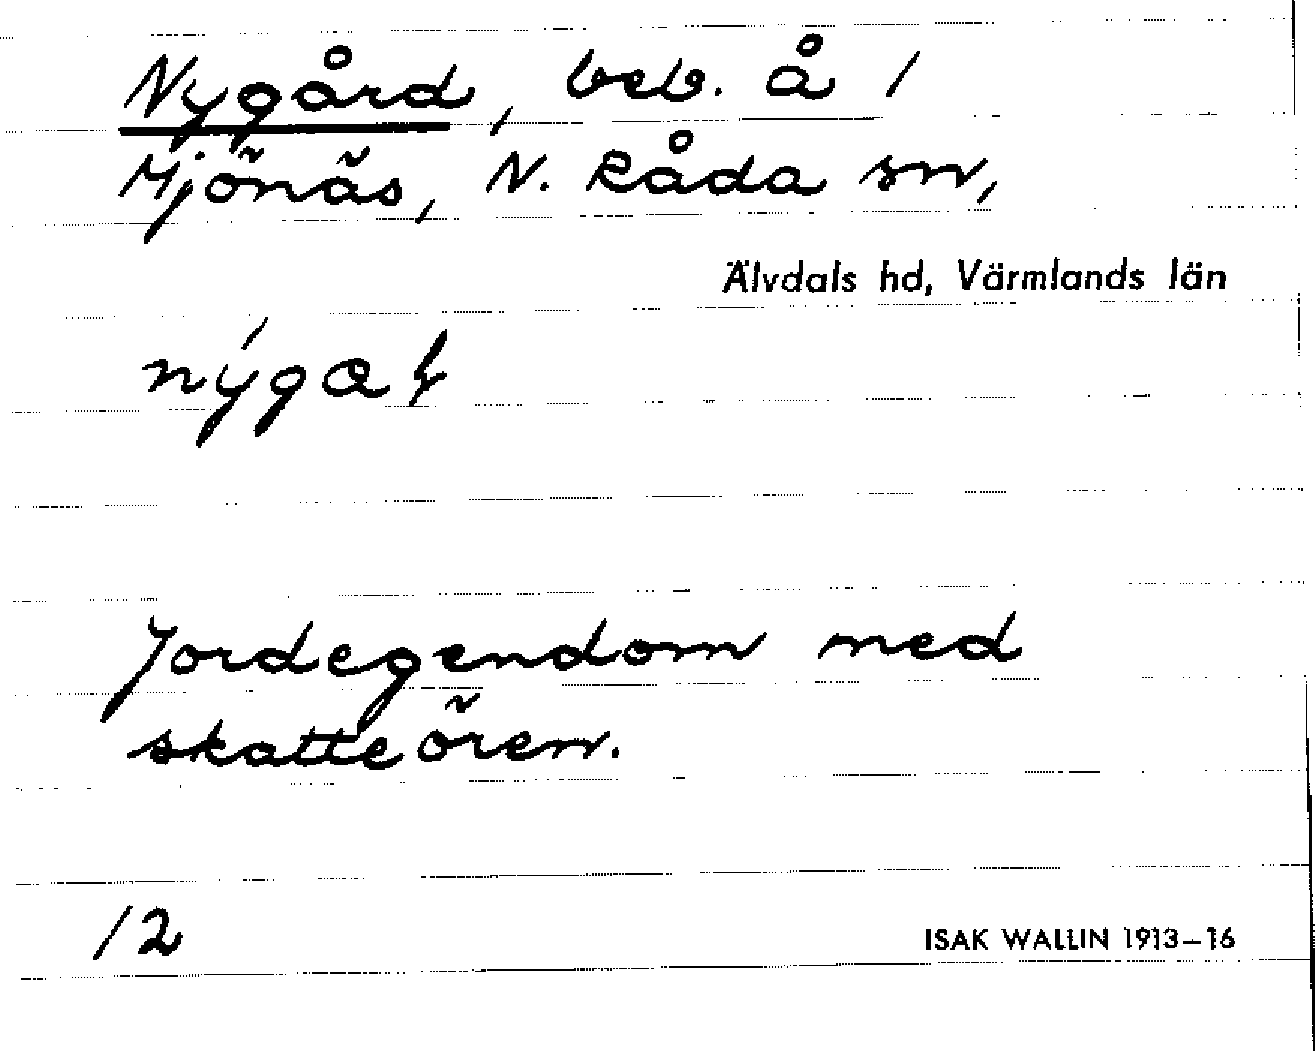 Nygård, beb. å 1
Mjönäs, N. Råda sn,
Älvdals hd, Värmlands län
Jordegendom med
skatteören.
12
ISAK WALLIN 1913–16